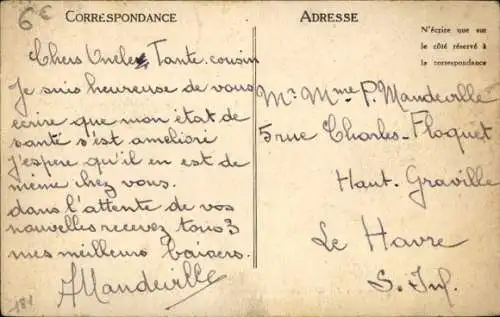 6€
CORRESPONDANCE
Chers Oncle, Tante, cousin
Je suis heureuse de vous
écrire que mon état de
santé s'est amélioré
j'espère qu'il en est de
même chez vous.
dans l'attente de vos
nouvelles recevez tous 3
mes meilleurs baisers.
A Mandeville
181
ADRESSE
N'écrire que sur
le côté réservé à
la correspondance
Mr Mme P. Mandeville
5 rue Charles-Floquet
Haut-Graville
Le Havre
S. Inf.